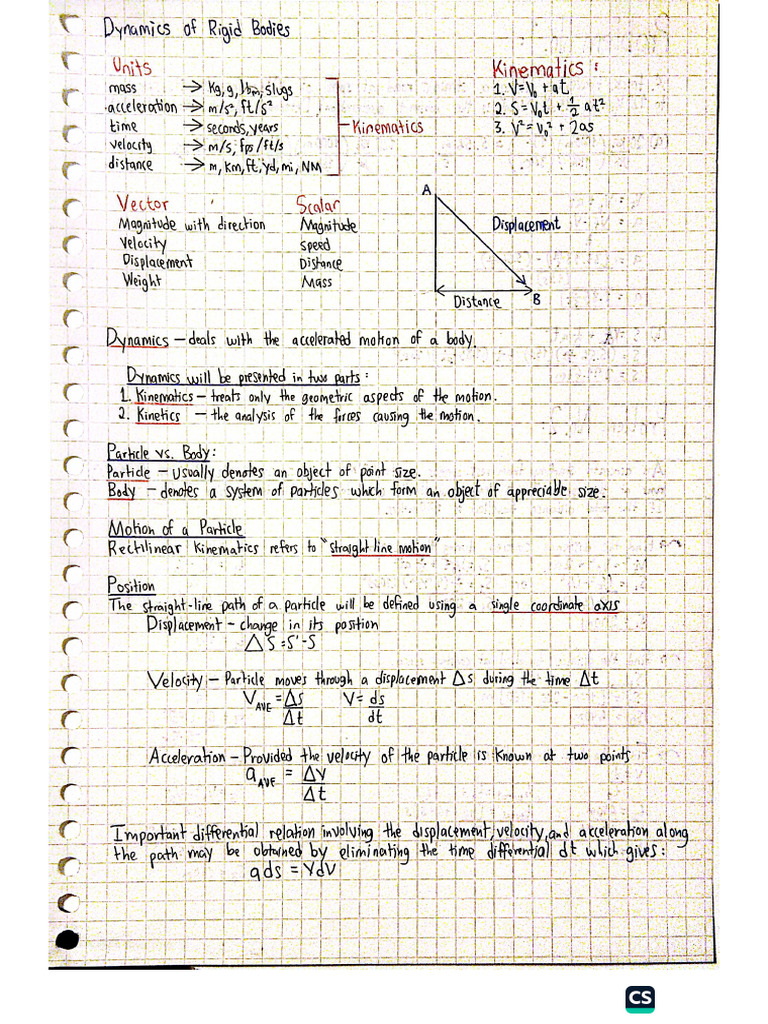 Dynamics of Rigid Bodies
Units
mass → Kg, g, lbm, slugs
acceleration → m/s², ft/s²
time → seconds, years
velocity → m/s, fps/ft/s
distance → m, Km, ft, yd, mi, NM
Kinematics
Kinematics:
1. V=V₀ + at
2. S=V₀t + 1/2 at²
3. V²=V₀² + 2as
Vector Scalar
Magnitude with direction Magnitude
Velocity Speed
Displacement Distance
Weight Mass
A
Displacement
Distance
B
Dynamics – deals with the accelerated motion of a body.
Dynamics will be presented in two parts:
1. Kinematics – treats only the geometric aspects of the motion.
2. Kinetics – the analysis of the forces causing the motion.
Particle vs. Body:
Particle – usually denotes an object of point size.
Body – denotes a system of particles which form an object of appreciable size.
Motion of a Particle
Rectilinear Kinematics refers to "straight line motion"
Position
The straight-line path of a particle will be defined using a single coordinate axis
Displacement – change in its position
△S=S'-S
Velocity – Particle moves through a displacement △s during the time △t
V_AVE = △s/△t V= ds/dt
Acceleration – Provided the velocity of the particle is known at two points
a_AVE = △v/△t
Important differential relation involving the displacement, velocity, and acceleration along
the path may be obtained by eliminating the time differential dt which gives:
ads = VdV
CS